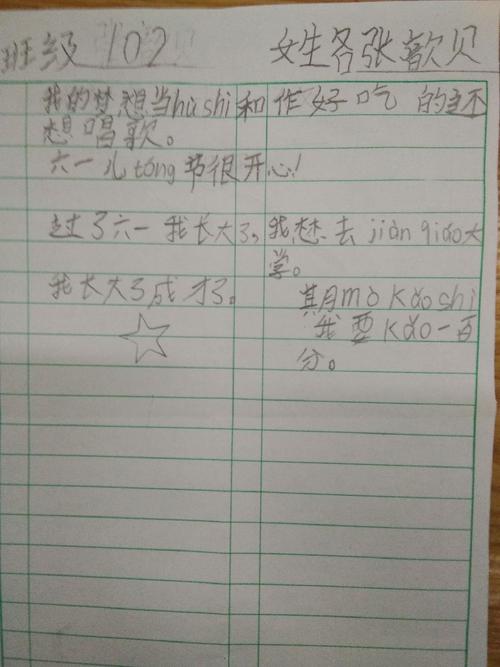 班级 102 姓名张歆贝
我的梦想当hùshi和作好吃的还
想唱歌。
六一儿tóng节很开心!
过了六一我长大了,我想去jiàn qiáo大
学。
我长大了成才了。
其月mò kǎo shì
我要kǎo一百
分。